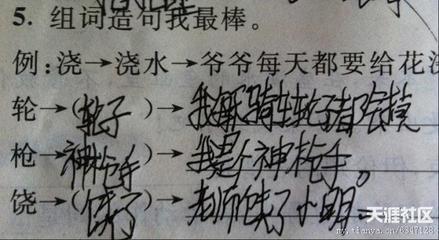 5. 组词造句我最棒。
例:浇→浇水→爷爷每天都要给花
轮→(轮子)→我每骑车轮子都
枪→神枪手)→我是个神枪手。
饶→(饶了)→老师饶了小明。
天涯社区
my.tianya.cn/6347128